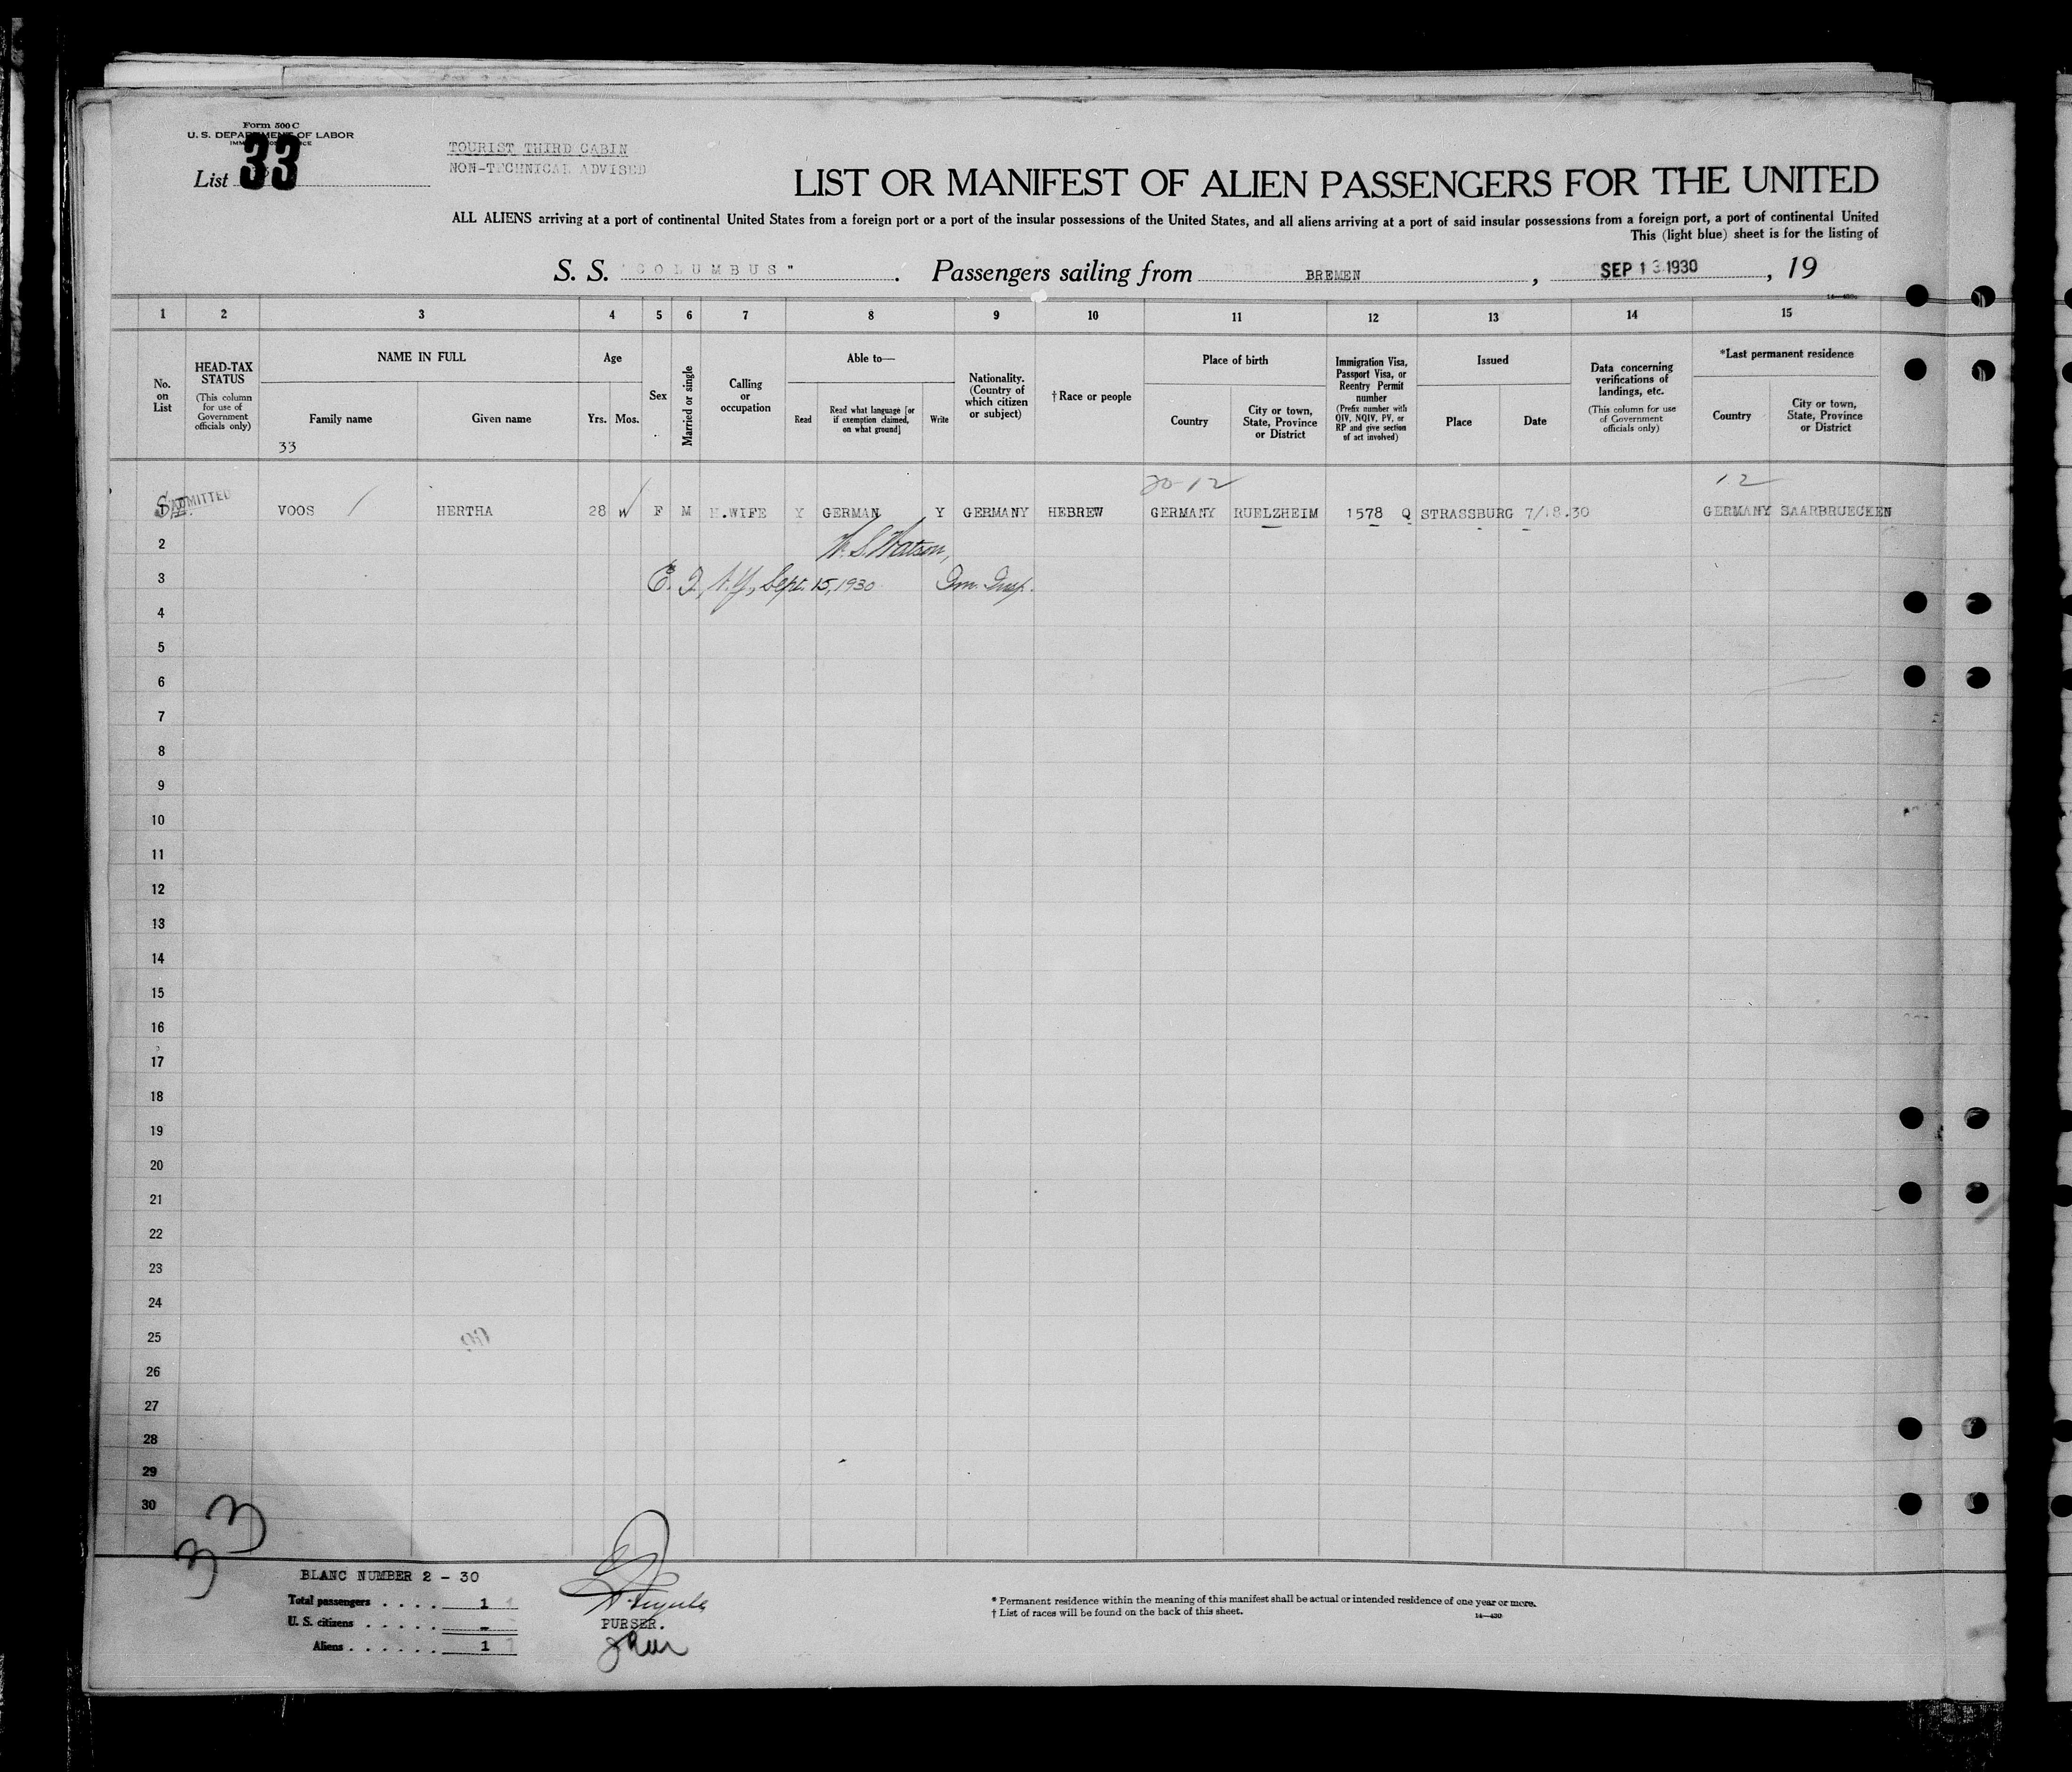 Form 500 C
U. S. DEPARTMENT OF LABOR
List 33
TOURIST THIRD CABIN
NON-TECHNICAL ADVISED
LIST OR MANIFEST OF ALIEN PASSENGERS FOR THE UNITED
ALL ALIENS arriving at a port of continental United States from a foreign port or a port of the insular possessions of the United States, and all aliens arriving at a port of said insular possessions from a foreign port, a port of continental United
This (light blue) sheet is for the listing of
S. S. "COLUMBUS". Passengers sailing from BREMEN, SEP 13 1930, 19
1 2 3 4 5 6 7 8 9 10 11 12 13 14 15
No. on List
HEAD-TAX STATUS
(This column for use of Government officials only)
NAME IN FULL
Family name
Given name
33
Age
Yrs. Mos.
Sex
Married or single
Calling or occupation
Able to—
Read
Read what language [or if exemption claimed, on what ground]
Write
Nationality. (Country of which citizen or subject)
†Race or people
Place of birth
Country
City or town, State, Province or District
Immigration Visa, Passport Visa, or Reentry Permit number
(Prefix number with QIV, NQIV, PV, or RP and give section of act involved)
Issued
Place
Date
Data concerning verifications of landings, etc.
(This column for use of Government officials only)
*Last permanent residence
Country
City or town, State, Province or District
20-12 12
ADMITTED
VOOS HERTHA 28 F M H.WIFE Y GERMAN Y GERMANY HEBREW GERMANY RUELZHEIM 1578 Q STRASSBURG 7/18.30 GERMANY SAARBRUECKEN
2
W. S. Watson,
3
E. I., N.Y., Sept. 15, 1930 Im. Insp.
4
5
6
7
8
9
10
11
12
13
14
15
16
17
18
19
20
21
22
23
24
25
26
27
28
29
30
33
BLANC NUMBER 2 - 30
Total passengers . . . . 1
U. S. citizens . . . . . -
Aliens . . . . . . 1
PURSER.
* Permanent residence within the meaning of this manifest shall be actual or intended residence of one year or more.
† List of races will be found on the back of this sheet.
14—430